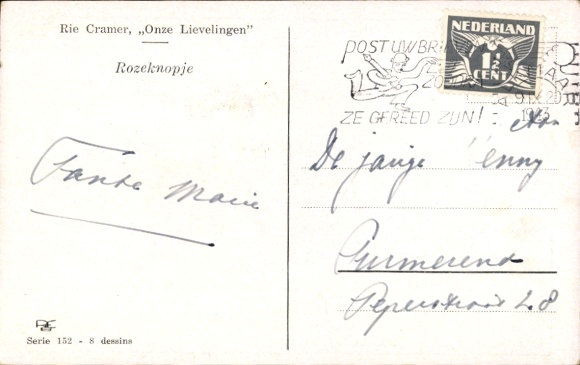 Rie Cramer, „Onze Lievelingen"
Rozeknopje
Tante Marie
Serie 152 - 8 dessins
NEDERLAND
1½
CENT
POST UW BRI
ZE GEREED ZIJN!
1943
Aan
De jarige Penny
Purmerend
Peperstraat 28